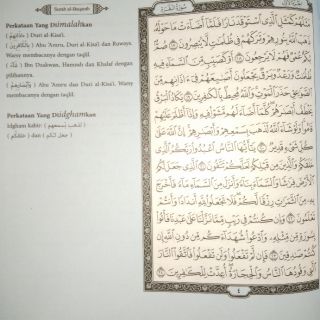 Surah al-Baqarah
سورة البقرة
Perkataan Yang Diimalahkan
( ءَاذَانِهِم ) Duri al-Kisa'i.
( بِالْكَافِرِينَ ) Abu 'Amru, Duri al-Kisa'i dan Ruways.
Warsy membacanya dengan taqlil.
Ibn Dzakwan, Hamzah dan Khalaf dengan
pilihannya.
( وَأَبْصَارِهِمْ ) Abu 'Amru, Duri al-Kisa'i. Warsy
membacanya dengan taqlil.
Perkataan Yang Diidghamkan
Idgham kabir: ( لَذَهَبَ بِسَمْعِهِمْ )
( خَلَقَكُمْ ) dan ( جَعَلَ لَكُمُ )
مَثَلُهُمْ كَمَثَلِ الَّذِي اسْتَوْقَدَ نَارًا فَلَمَّا أَضَاءَتْ مَا حَوْلَهُ
ذَهَبَ اللَّهُ بِنُورِهِمْ وَتَرَكَهُمْ فِي ظُلُمَاتٍ لَا يُبْصِرُونَ ١٧
صُمٌّ بُكْمٌ عُمْيٌ فَهُمْ لَا يَرْجِعُونَ ١٨ أَوْ كَصَيِّبٍ مِنَ السَّمَاءِ
فِيهِ ظُلُمَاتٌ وَرَعْدٌ وَبَرْقٌ يَجْعَلُونَ أَصَابِعَهُمْ فِي آذَانِهِمْ مِنَ
الصَّوَاعِقِ حَذَرَ الْمَوْتِ وَاللَّهُ مُحِيطٌ بِالْكَافِرِينَ ١٩ يَكَادُ الْبَرْقُ
يَخْطَفُ أَبْصَارَهُمْ كُلَّمَا أَضَاءَ لَهُمْ مَشَوْا فِيهِ وَإِذَا أَظْلَمَ عَلَيْهِمْ
قَامُوا وَلَوْ شَاءَ اللَّهُ لَذَهَبَ بِسَمْعِهِمْ وَأَبْصَارِهِمْ إِنَّ اللَّهَ عَلَى
كُلِّ شَيْءٍ قَدِيرٌ ٢٠ يَا أَيُّهَا النَّاسُ اعْبُدُوا رَبَّكُمُ الَّذِي
خَلَقَكُمْ وَالَّذِينَ مِنْ قَبْلِكُمْ لَعَلَّكُمْ تَتَّقُونَ ٢١ الَّذِي جَعَلَ لَكُمُ
الْأَرْضَ فِرَاشًا وَالسَّمَاءَ بِنَاءً وَأَنْزَلَ مِنَ السَّمَاءِ مَاءً فَأَخْرَجَ
بِهِ مِنَ الثَّمَرَاتِ رِزْقًا لَكُمْ فَلَا تَجْعَلُوا لِلَّهِ أَنْدَادًا وَأَنْتُمْ
تَعْلَمُونَ ٢٢ وَإِنْ كُنْتُمْ فِي رَيْبٍ مِمَّا نَزَّلْنَا عَلَى عَبْدِنَا فَأْتُوا
بِسُورَةٍ مِنْ مِثْلِهِ وَادْعُوا شُهَدَاءَكُمْ مِنْ دُونِ اللَّهِ إِنْ
كُنْتُمْ صَادِقِينَ ٢٣ فَإِنْ لَمْ تَفْعَلُوا وَلَنْ تَفْعَلُوا فَاتَّقُوا النَّارَ
الَّتِي وَقُودُهَا النَّاسُ وَالْحِجَارَةُ أُعِدَّتْ لِلْكَافِرِينَ ٢٤
٤